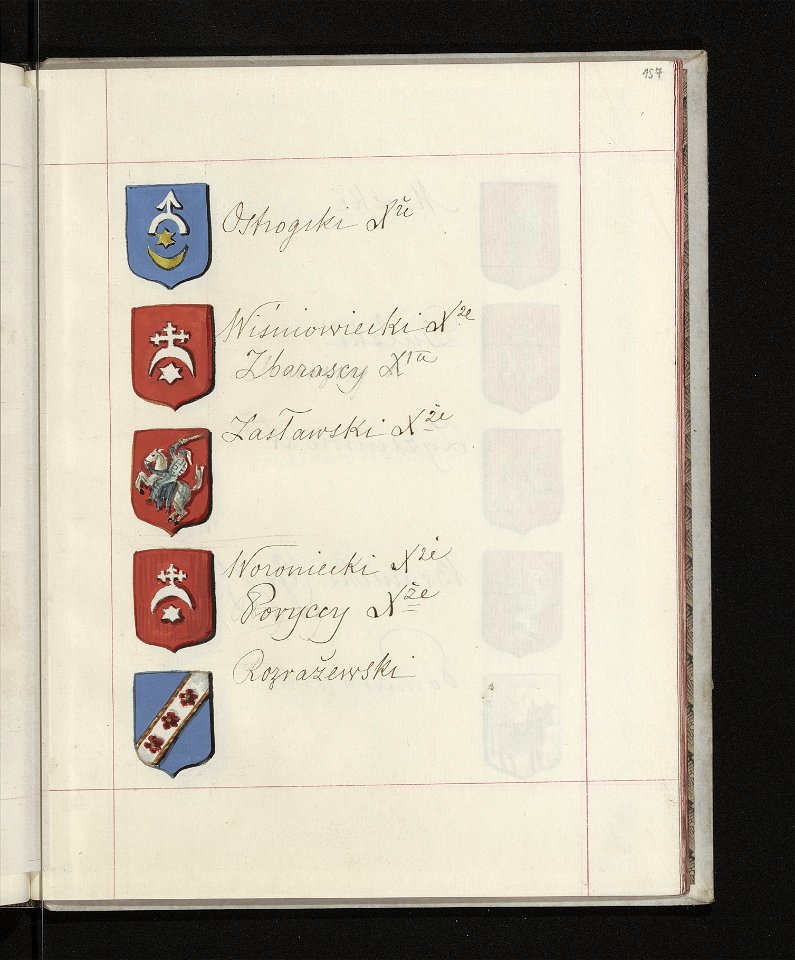 157
Ostrogski Xże
Wiśniowiecki Xże
Zbarascy Xta
Zasławski Xże
Woroniecki Xże
Poryccy Xże
Rozrażewski